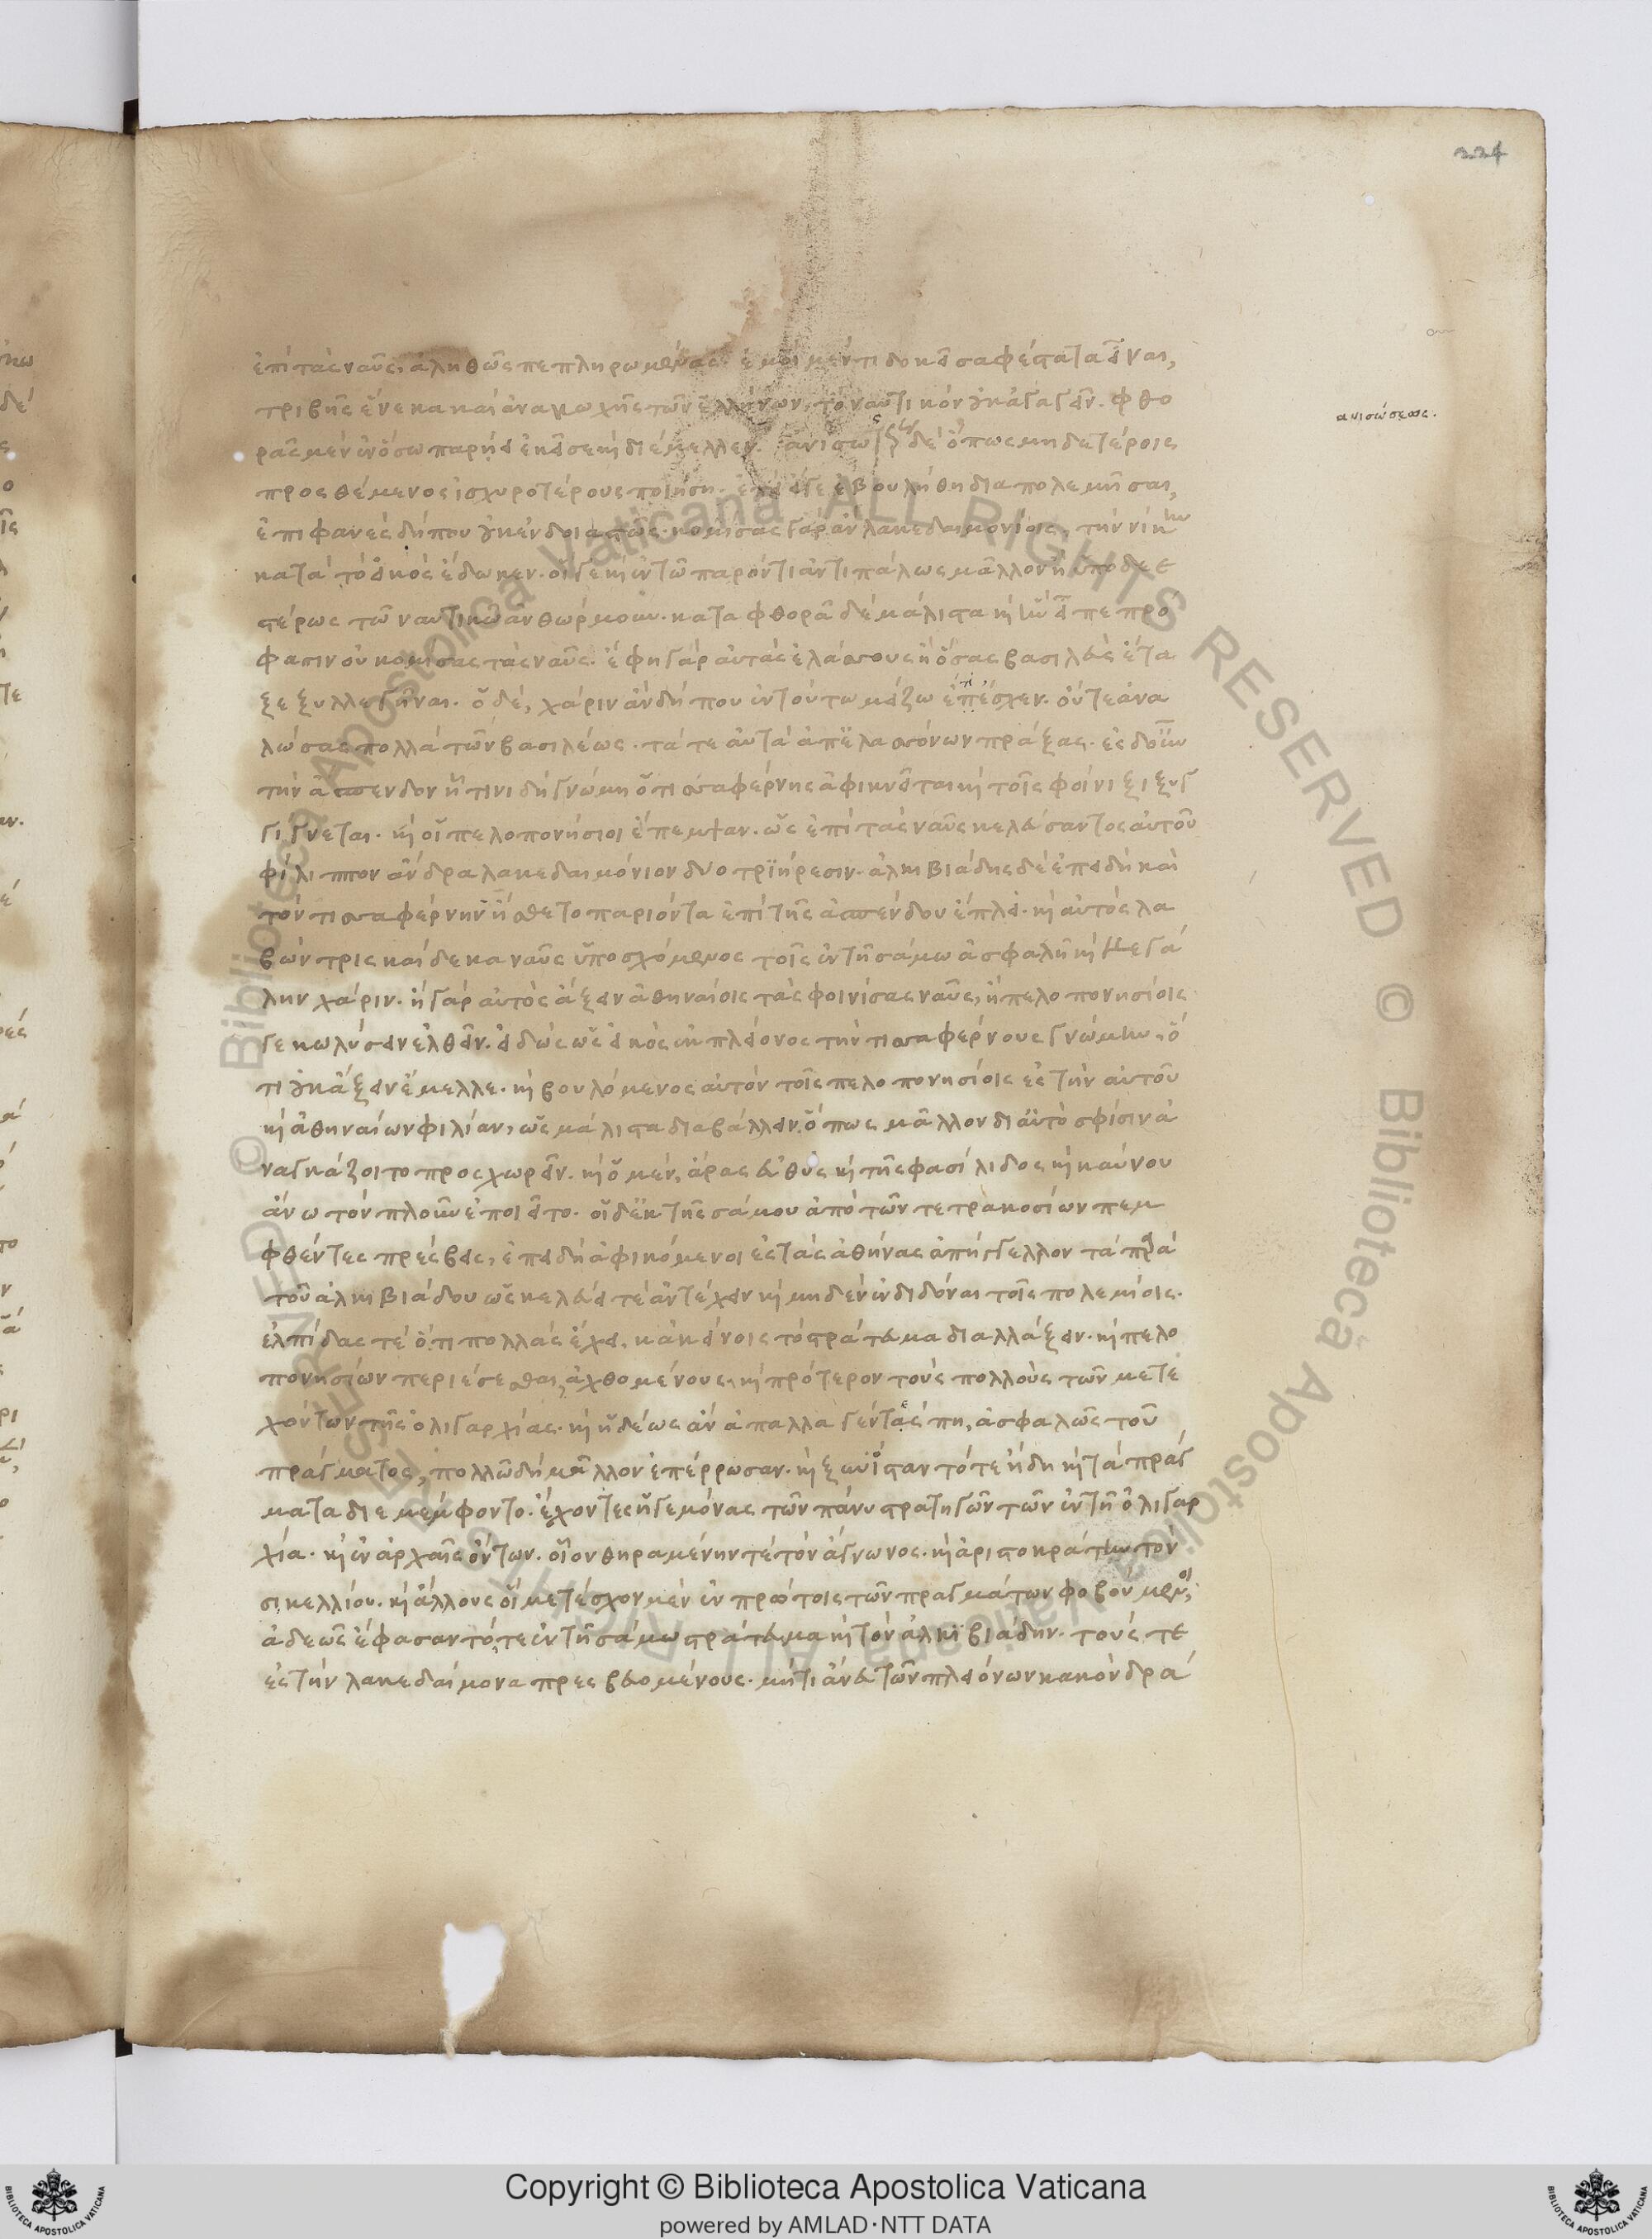 224
ἐπὶ τὰς ναῦς, ἀληθῶς πεπληρωμένας. ἐμοὶ μέντι δοκεῖ σαφέστατα εἶναι,
τριβῆς ἕνεκα καὶ ἀνακωχῆς τῶν ἑλλήνων, τὸ ναυτικὸν οὐκ ἀγαγεῖν. φθο
ανισώσεως.
ρᾶς μὲν ἐν ὅσω παρήει ἐκεῖσε καὶ διέμελλεν. δὲ ὅπως μηδετέροις
προσθέμενος ἰσχυροτέρους ποιήση. ἐπεὶ εἴγε ἐβουλήθη διαπολεμῆσαι,
ἐπιφανὲς δήπου οὐκ ἐνδοιαστῶς. κομίσας γὰρ ἂν λακεδαιμονίοις, τὴν νίκην
κατὰ τὸ εἰκὸς ἔδωκεν. οἵ γε καὶ ἐν τῶ παρόντι ἀντιπάλως μᾶλλον ἢ ὑποδεε
στέρως τῶ ναυτικῶ ἀνθώρμουν. καταφθορᾶ δὲ μάλιστα καὶ ἣν εἶπε πρό
φασιν οὐ κομίσας τὰς ναῦς. ἔφη γὰρ αὐτὰς ἐλάσσους ἢ ὅσας βασιλεὺς ἔτα
ξε ξυλλεγῆναι. ὁ δὲ, χάριν ἂν δήπου ἐν τούτω μείζω ἐπέσχεν. οὔτε ἀνα
λώσας πολλὰ τῶν βασιλέως. τά τε αὐτὰ ἀπ' ἐλασσόνων πράξας. ἐς δ' οὖν
τὴν ἄσπενδον ἥτινι δὴ γνώμη ὁ τισσαφέρνης ἀφικνεῖται καὶ τοῖς φοίνιξι ξυγ
γίγνεται. καὶ οἱ πελοπονήσιοι ἔπεμψαν. ὡς ἐπὶ τὰς ναῦς κελεύσαντος αὐτοῦ
φίλιππον ἄνδρα λακεδαιμόνιον δύο τριήρεσιν. ἀλκιβιάδης δὲ ἐπειδὴ καὶ
τὸν τισσαφέρνην ἤσθετο παριόντα ἐπὶ τῆς ἀσπένδου ἔπλει. καὶ αὐτὸς λα
βὼν τρισκαίδεκα ναῦς ὑποσχόμενος τοῖς ἐν τῆ σάμω ἀσφαλῆ καὶ μεγά
λην χάριν. ἢ γὰρ αὐτὸς ἄξειν ἀθηναίοις τὰς φοινίσσας ναῦς, ἢ πελοπονησίοις
γε κωλύσειν ἐλθεῖν. εἰδὼς ὡς εἰκὸς ἐκ πλείονος τὴν τισσαφέρνους γνώμην, ὅ
τι οὐκ ἄξειν ἔμελλε. καὶ βουλόμενος αὐτὸν τοῖς πελοπονησίοις ἐς τὴν αὐτοῦ
καὶ ἀθηναίων φιλίαν, ὡς μάλιστα διαβάλλειν. ὅπως μᾶλλον δι' αὐτὸ σφίσιν ἀ
ναγκάζοιτο προσχωρεῖν. καὶ ὁ μὲν, ἄρας εὐθὺς καὶ τῆς φασίλιδος καὶ καύνου
ἄνω τὸν πλοῦν ἐποιεῖτο. οἱ δ' ἐκ τῆς σάμου ἀπὸ τῶν τετρακοσίων πεμ
φθέντες πρέσβεις, ἐπειδὴ ἀφικόμενοι ἐς τὰς ἀθήνας ἀπήγγελλον τὰ παρὰ
τοῦ ἀλκιβιάδου ὡς κελεύει τε ἀντέχειν καὶ μηδὲν ἐνδιδόναι τοῖς πολεμίοις.
ἐλπίδας τὲ ὅτι πολλὰς ἔχει, κἀκείνοις τὸ στράτευμα διαλλάξειν. καὶ πελο
πονησίων περιέσεσθαι, ἀχθομένους, καὶ πρότερον τοὺς πολλοὺς τῶν μετε
χόντων τῆς ὀλιγαρχίας. καὶ ἡδέως ἂν ἀπαλλαγέντας πη, ἀσφαλῶς τοῦ
πράγματος, πολλῶ δὴ μᾶλλον ἐπέρρωσαν. καὶ ξυνίσταντό τε ἤδη καὶ τὰ πράγ
ματα διεμέμφοντο. ἔχοντες ἡγεμόνας τῶν πάνυ στρατηγῶν τῶν ἐν τῆ ὀλιγαρ
χία. καὶ ἐν ἀρχαῖς ὄντων. οἷον θηραμένην τὲ τὸν ἅγνωνος. καὶ ἀριστοκράτην τὸν
σικελλίου. καὶ ἄλλους οἳ μετέσχον μὲν ἐν πρώτοις τῶν πραγμάτων φοβούμενοι,
ἀδεῶς ἔφασαν τό, τε ἐν τῆ σάμω στράτευμα καὶ τὸν ἀλκιβιάδην. τούς τε
ἐς τὴν λακεδαίμονα πρεσβευομένους. μή τι ἄνευ τῶν πλειόνων κακὸν δρά
© Biblioteca Apostolica Vaticana ALL RIGHTS RESERVED
Copyright © Biblioteca Apostolica Vaticana
powered by AMLAD·NTT DATA